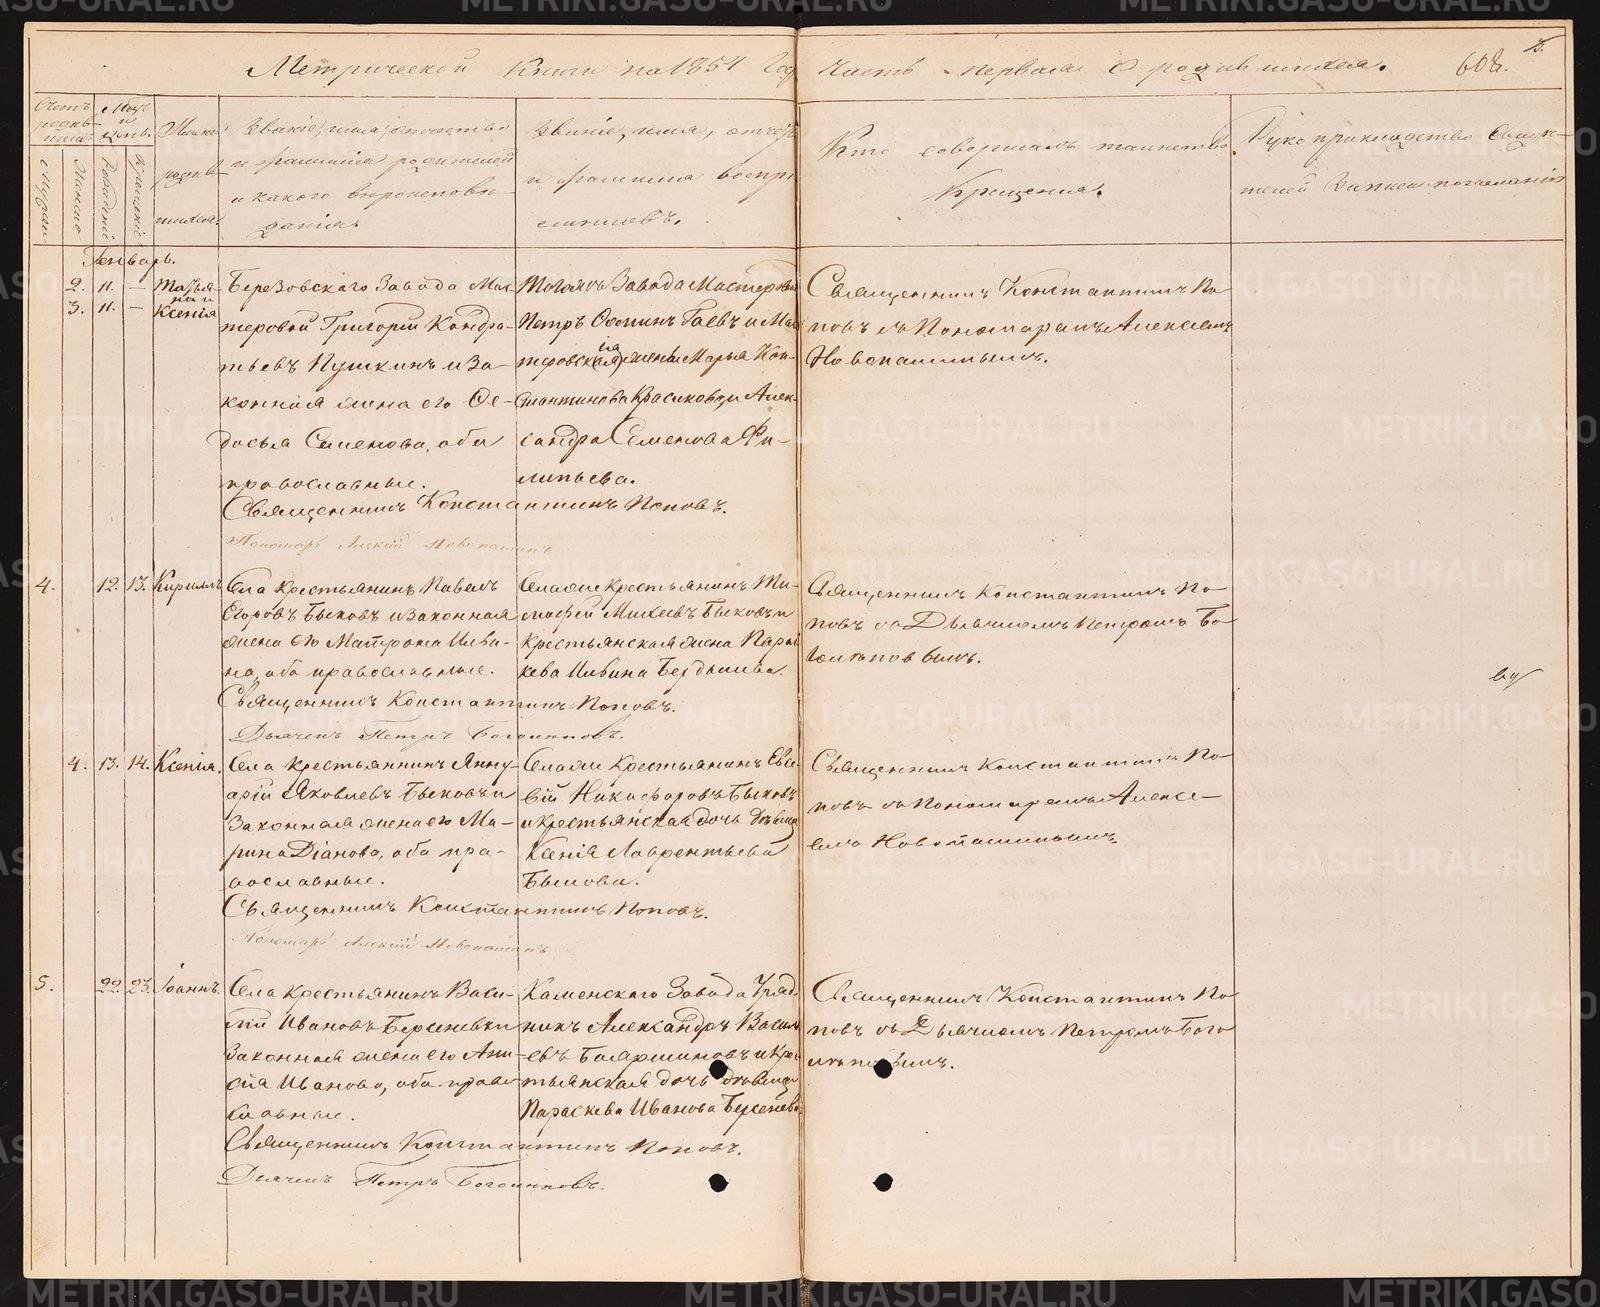 Метрической Книги на 1854 Год Часть первая о родившихся. 608.
Счетъ родив-шихся
Мѣс. и день.
Имена родив-шихся.
Званіе, имя, отчество
и фамилія родителей
и какого вѣроисповѣ-
данія.
Званіе, имя, отчес
и фамилія воспрі
емниковъ.
Кто совершалъ таинство
Крещенія.
Рукоприкладство свидѣ-
телей записи по желанію
Генварь.
2. 11. — Татья-
на и
3. 11. — Ксенія
Березовскаго Завода Мас-
теровой Григорій Кондра-
тьевъ Пушкинъ и За-
конная жена его Ѳе-
досья Семенова, оба
православные.
Священникъ Константинъ Поповъ.
Пономарь Алексій Новопашинъ
Тогожъ Завода Мастеровой
Петръ Ѳоминъ Гаевъ и Мас
теровская жена Марья Кон-
стантинова Красикова, и Алек-
сандра Семенова Фи-
липьева.
Священникъ Константинъ По-
повъ съ Пономаремъ Алексѣемъ
Новопашинымъ.
4. 12. 13. Кириллъ
Села крестьянинъ Павелъ
Егоровъ Быковъ и законная
жена его Матрона Ильи-
на, оба православные.
Священникъ Константинъ Поповъ.
Дьячекъ Петръ Боголѣповъ.
Селаже крестьянинъ Ти-
мофей Михеевъ Быковъ и
крестьянская жена Парас
кева Ильина
Священникъ Константинъ По-
повъ съ Дьячкомъ Петромъ Бо-
голѣповымъ.
4. 13. 14. Ксенія.
Села крестьянинъ Янну-
арій Яковлевъ Быковъ и
Законная жена его Ма-
рина Діанова, оба пра-
вославные.
Священникъ Константинъ Поповъ.
Пономарь Алексій Новопашинъ
Селаже Крестьянинъ Евсе
вій Никифоровъ Быковъ
и крестьянская дочь дѣвица
Ксенія Лаврентьева
Быкова.
Священникъ Константинъ По-
повъ съ Пономаремъ Алексѣ-
емъ Новопашинымъ
5. 22. 23. Іоаннъ.
Села крестьянинъ Васи-
лій Ивановъ Берсеневъ и
Законная жена его Ани-
сія Иванова, оба право-
славные.
Священникъ Константинъ Поповъ.
Дьячекъ Петръ Боголѣповъ.
Каменскаго Завода Уряд-
никъ Александръ Василь
евъ Бояршиновъ и Крес
тьянская дочь дѣвица
Параскева Иванова Берсенева
Священникъ Константинъ По-
повъ съ Дьячкомъ Петромъ Бого
лѣповымъ.
METRIKI.GASO-URAL.RU